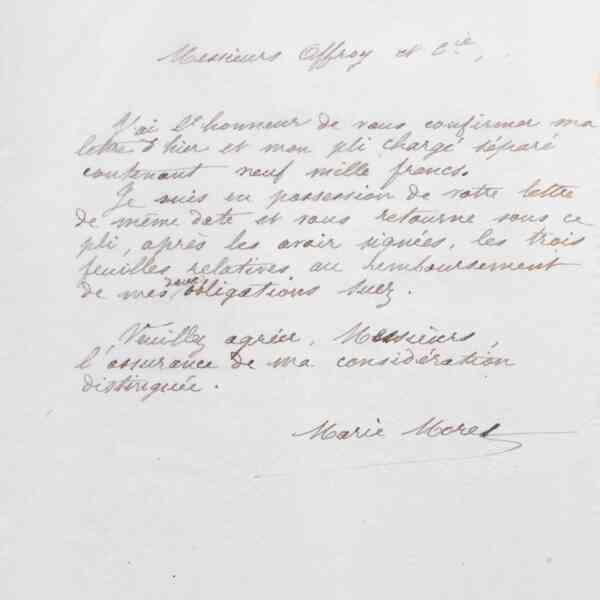 Messieurs Offroy et Cie,
J'ai l'honneur de vous confirmer ma
lettre d'hier et mon pli chargé séparé
contenant neuf mille francs.
Je suis en possession de votre lettre
de même date et vous retourne sous ce
pli, après les avoir signées, les trois
feuilles relatives au remboursement
de mes deux obligations Suez.
Veuillez agréer, Messieurs,
l'assurance de ma considération
distinguée.
Marie Morel